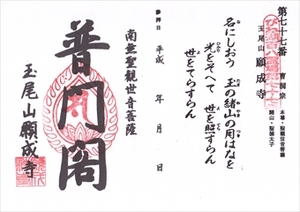 第七十七番
曹洞宗
本尊・聖観世音菩薩
開山・聖徳太子
玉尾山 願成寺
名にしおう 玉の緒山の月はなを
光をそへて 世を照すらん
世をてらすらん
参拝日
平成 年 月 日
南無聖観世音菩薩
普門閣
玉尾山願成寺